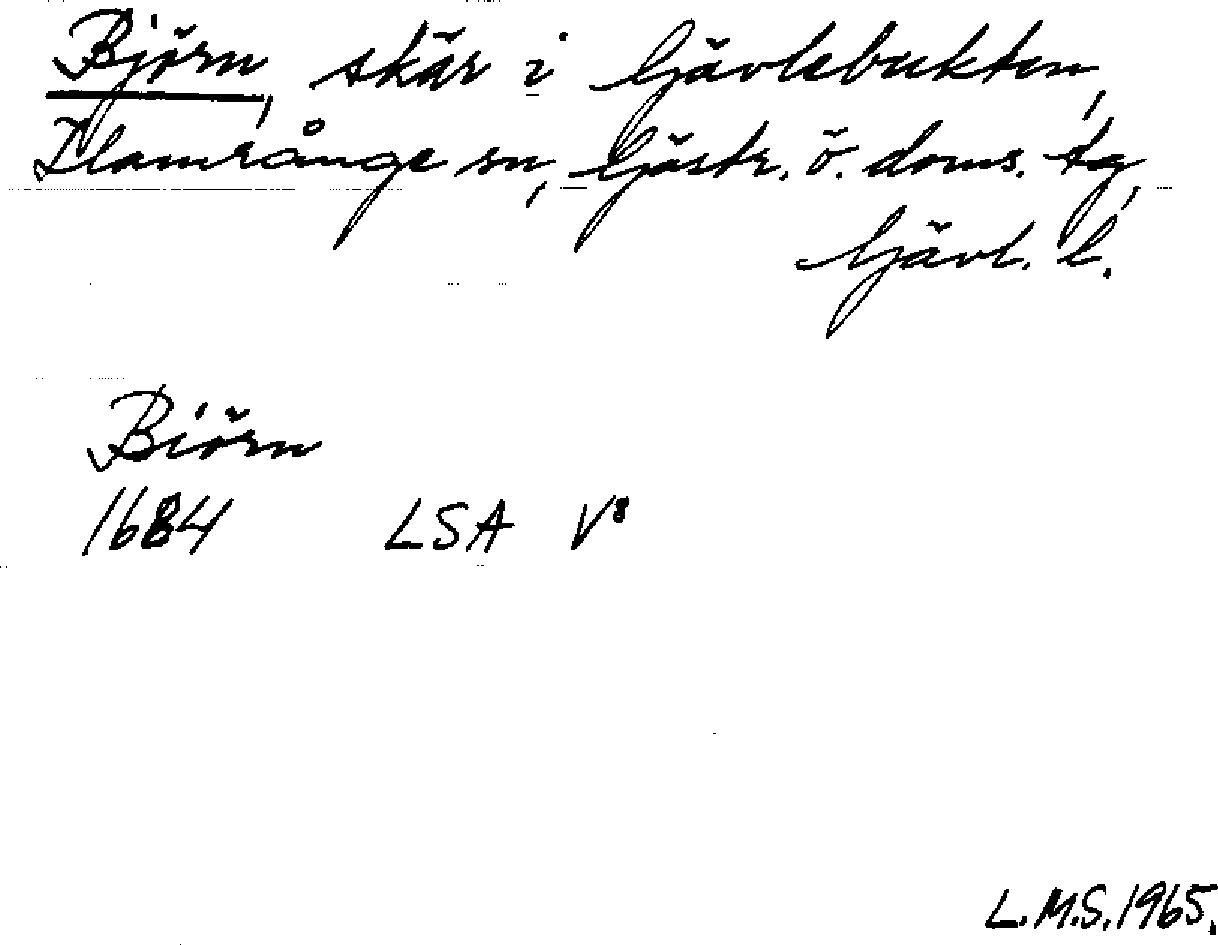 Björn, skär i Gävlebukten,
Hamrånge sn, Gästr. ö. doms. tg,
Gävl. l.
Biörn
1684 LSA V8
L.M.S. 1965.